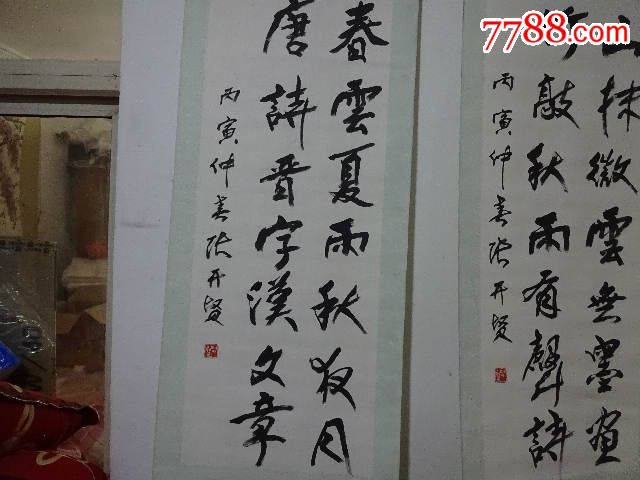 7788.com
山抹微雲無墨畫
竹敲秋雨有聲詩
丙寅仲春张开贤
春雲夏雨秋夜月
唐詩晉字漢文章
丙寅仲春张开贤